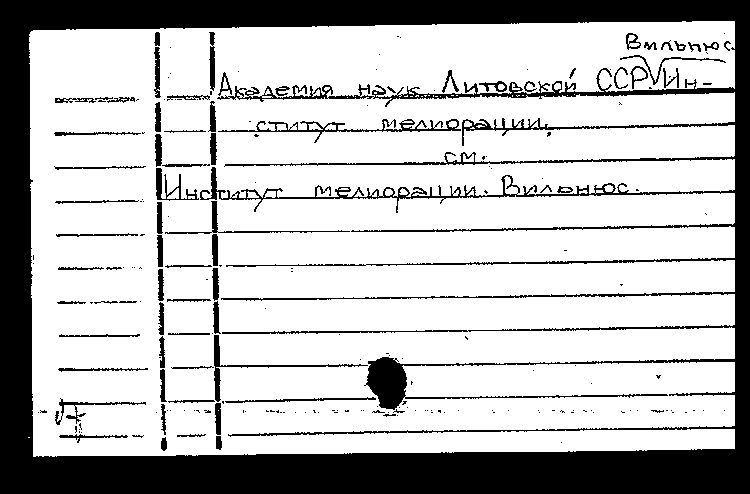 Вильнюс.
Академия наук Литовской ССР. Ин-
ститут мелиорации.
см.
Институт мелиорации. Вильнюс.